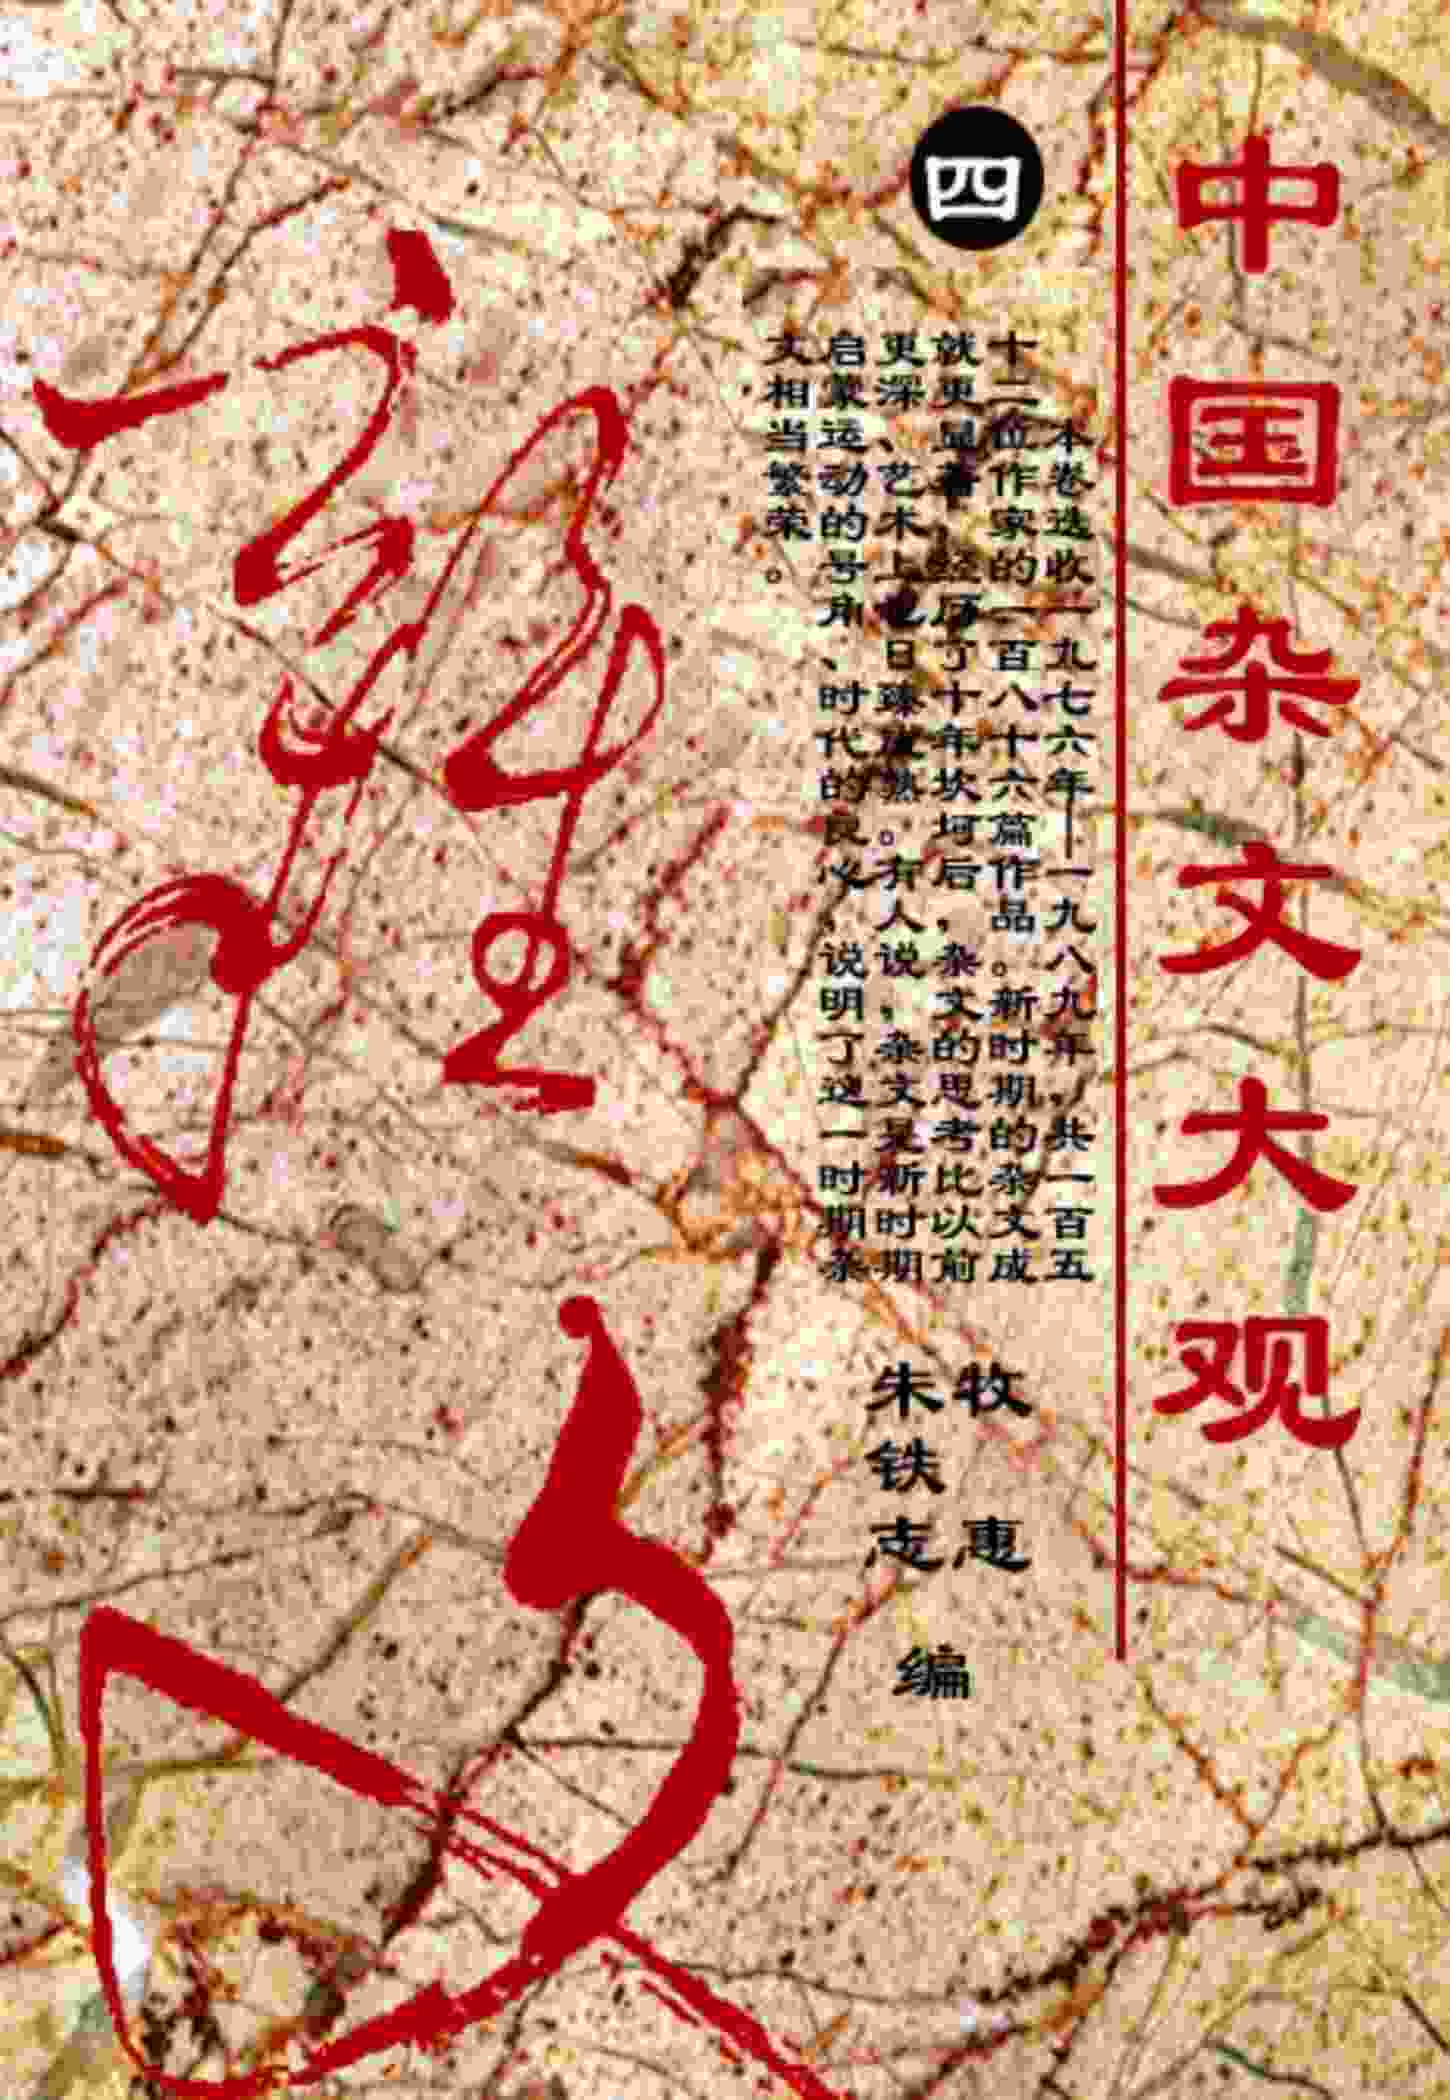 中国杂文大观
四
本卷选收一九七六年—一九八九年,共一百五
十二位作家的一百八十六篇作品。新时期的杂文成
就更显著,经历了十年坎坷后,杂文的思考比以前
更深、艺术上也日臻成熟。有人说,杂文是新时期
启蒙运动的号角、时代的良心,说明了这一时期杂
文相当繁荣。
牧惠
朱铁志
编